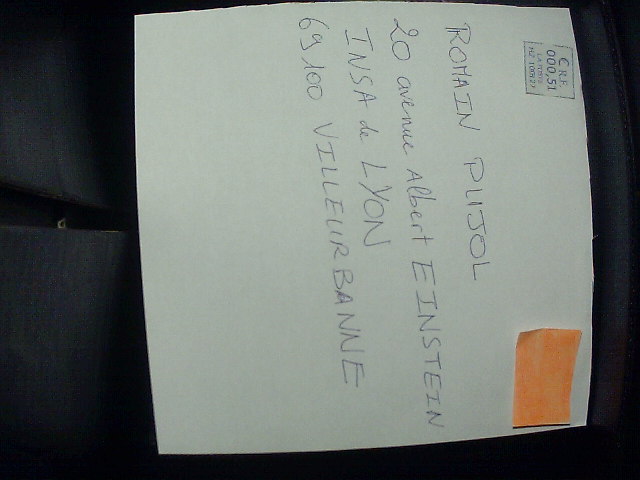 C RF
000,51
LA POSTE
ROMAIN PUJOL
20 avenue Albert EINSTEIN
INSA de LYON
69100 VILLEURBANNE